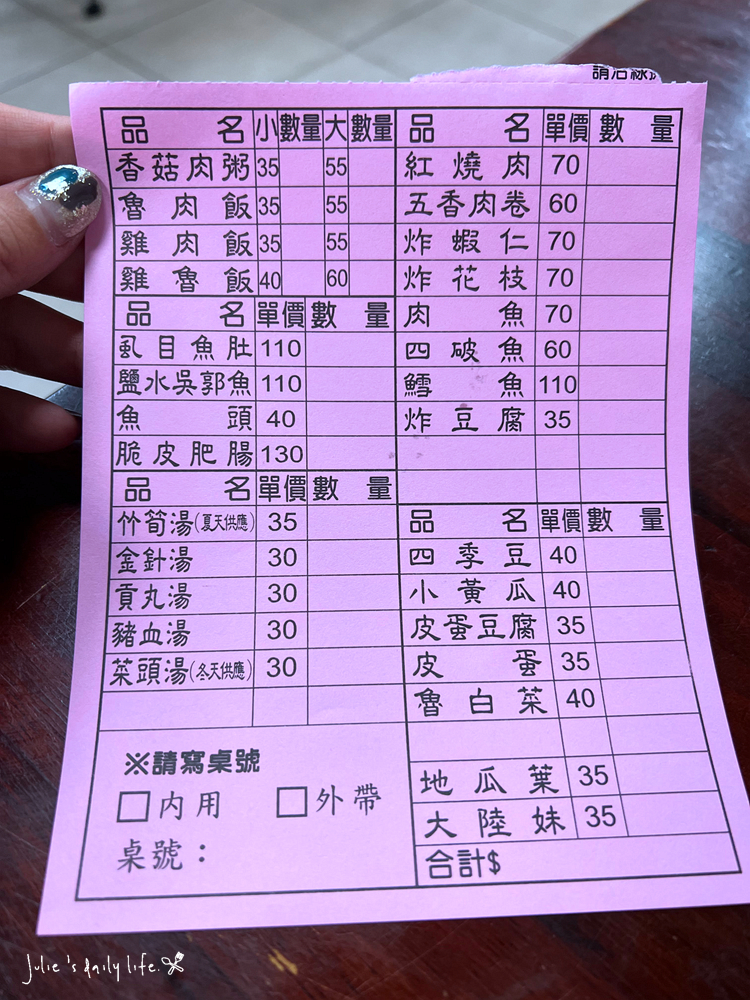 請沿線
品名 小 數量 大 數量
香菇肉粥 35 55
魯肉飯 35 55
雞肉飯 35 55
雞魯飯 40 60
品名 單價 數量
虱目魚肚 110
鹽水吳郭魚 110
魚頭 40
脆皮肥腸 130
品名 單價 數量
竹筍湯(夏天供應) 35
金針湯 30
貢丸湯 30
豬血湯 30
菜頭湯(冬天供應) 30
※請寫桌號
□內用 □外帶
桌號：
品名 單價 數量
紅燒肉 70
五香肉卷 60
炸蝦仁 70
炸花枝 70
肉魚 70
四破魚 60
鱈魚 110
炸豆腐 35
品名 單價 數量
四季豆 40
小黃瓜 40
皮蛋豆腐 35
皮蛋 35
魯白菜 40
地瓜葉 35
大陸妹 35
合計$
Julie's daily life.